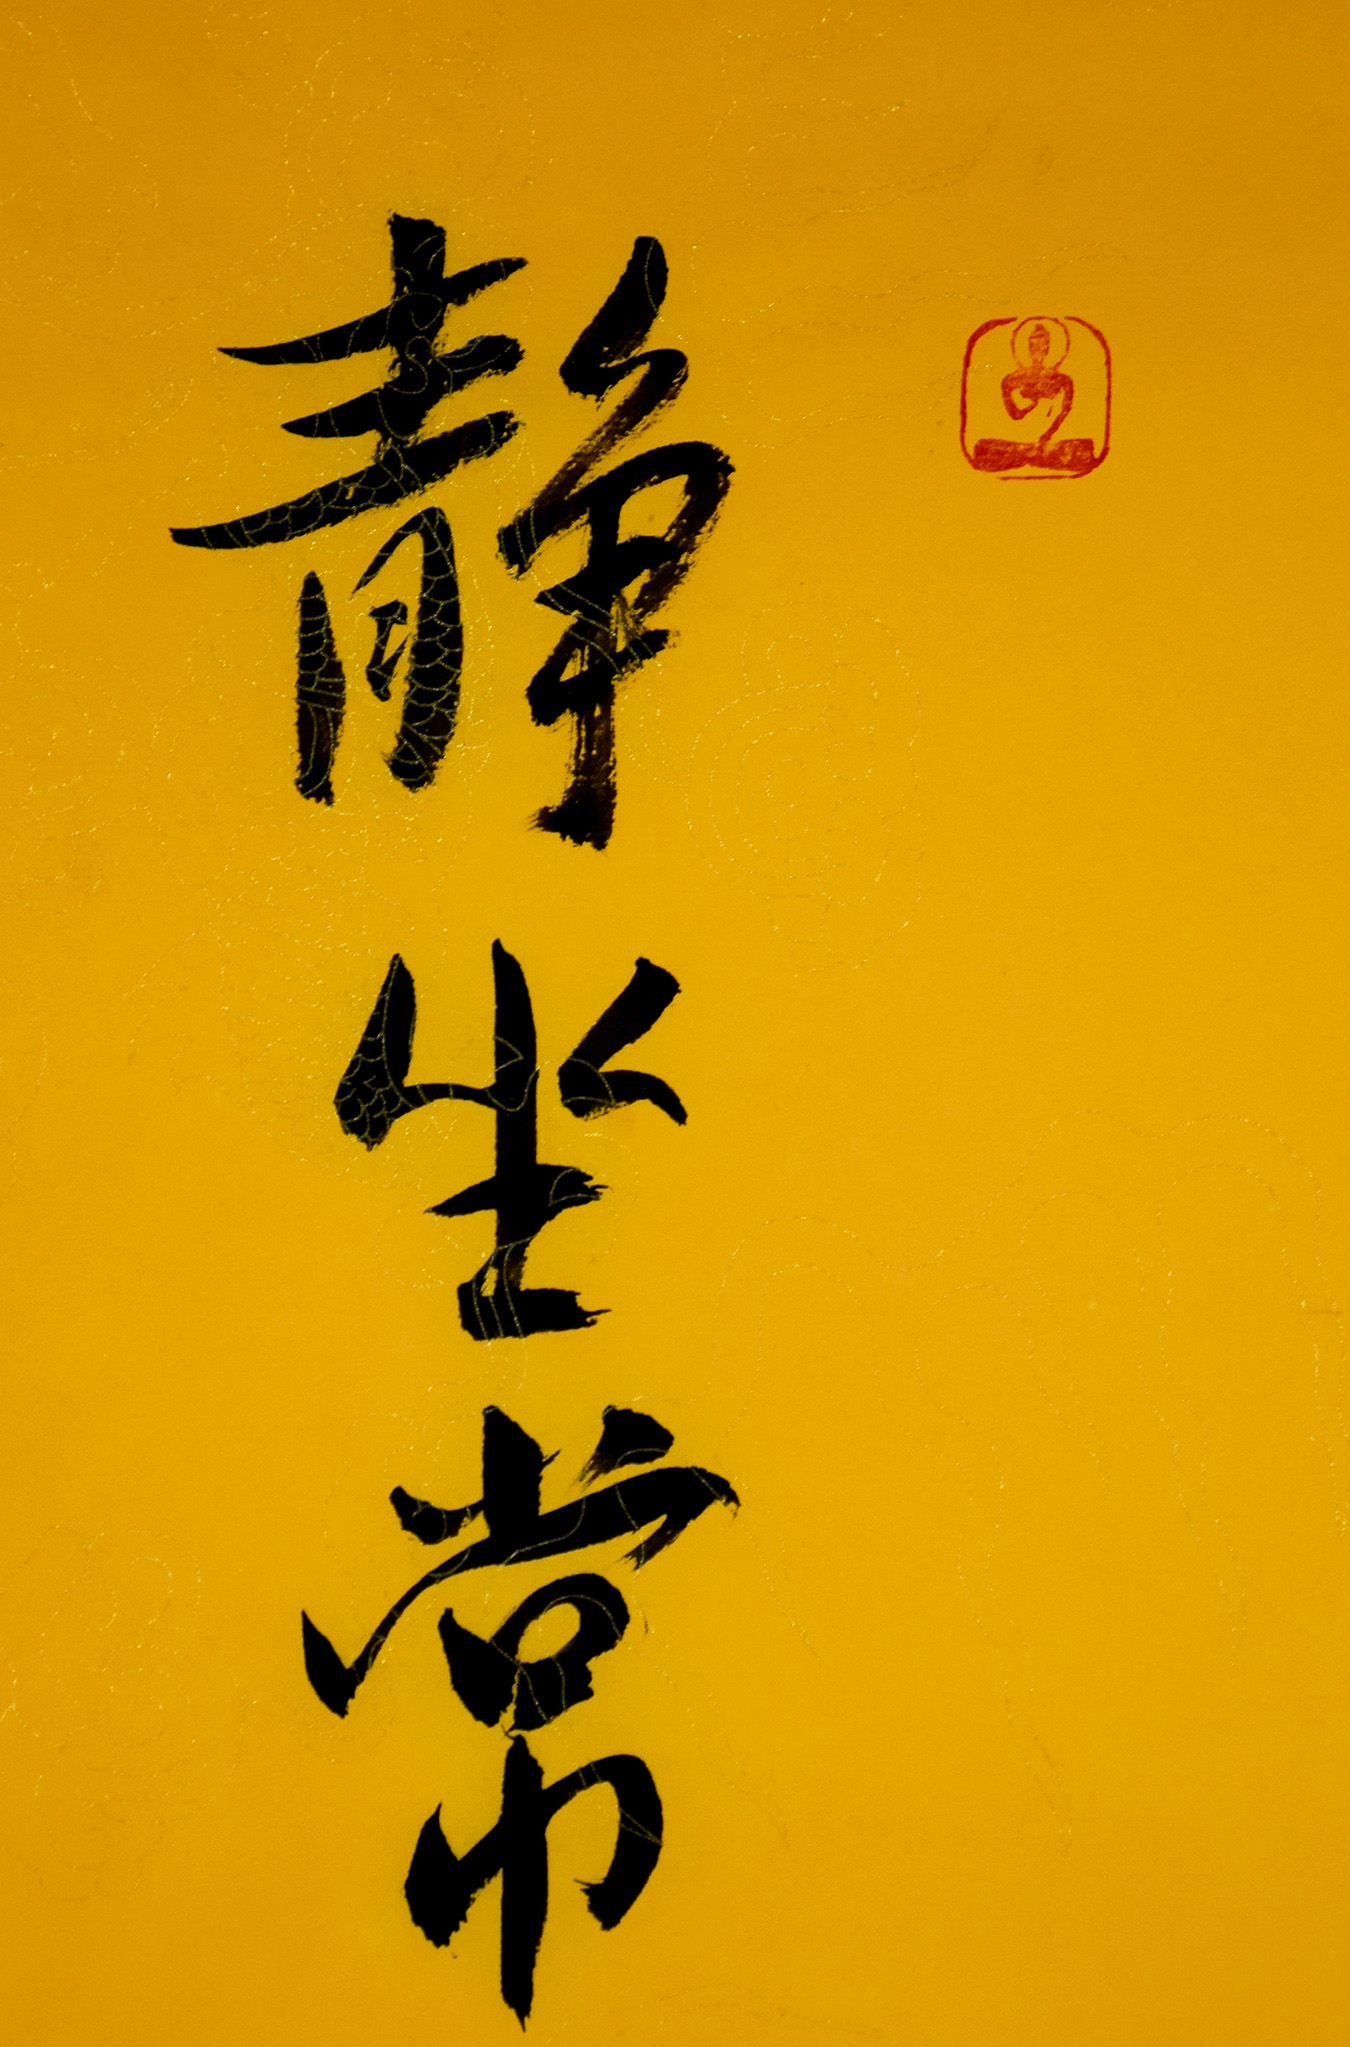 静坐常